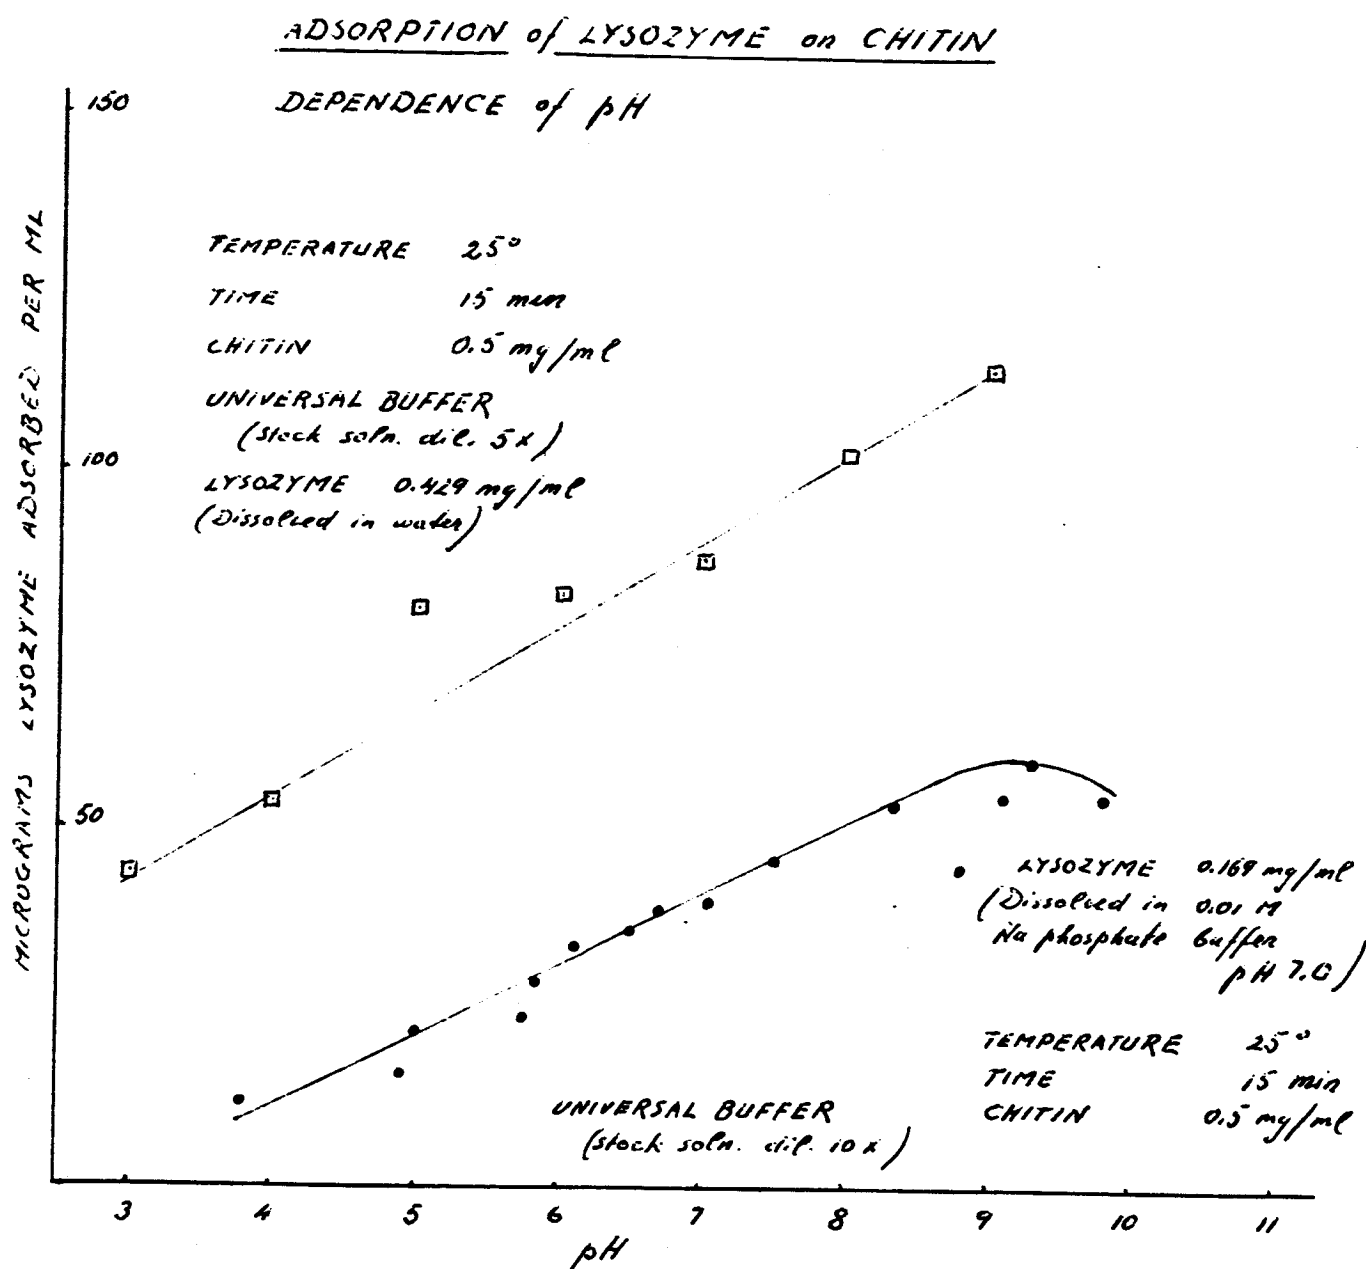 ADSORPTION of LYSOZYME on CHITIN
DEPENDENCE of pH
150
100
50
MICROGRAMS LYSOZYME ADSORBED PER ML
TEMPERATURE 25°
TIME 15 min
CHITIN 0.5 mg/ml
UNIVERSAL BUFFER
(Stock soln. dil. 5x)
LYSOZYME 0.429 mg/ml
(Dissolved in water)
LYSOZYME 0.169 mg/ml
(Dissolved in 0.01 M
Na phosphate buffer
pH 7.0)
TEMPERATURE 25°
TIME 15 min
CHITIN 0.5 mg/ml
UNIVERSAL BUFFER
(Stock soln. dil. 10x)
3 4 5 6 7 8 9 10 11
pH